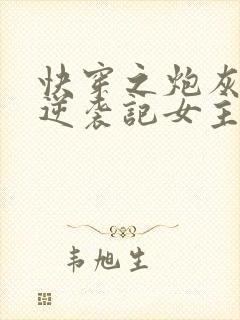 快穿之炮灰
逆袭記女主
韦旭生